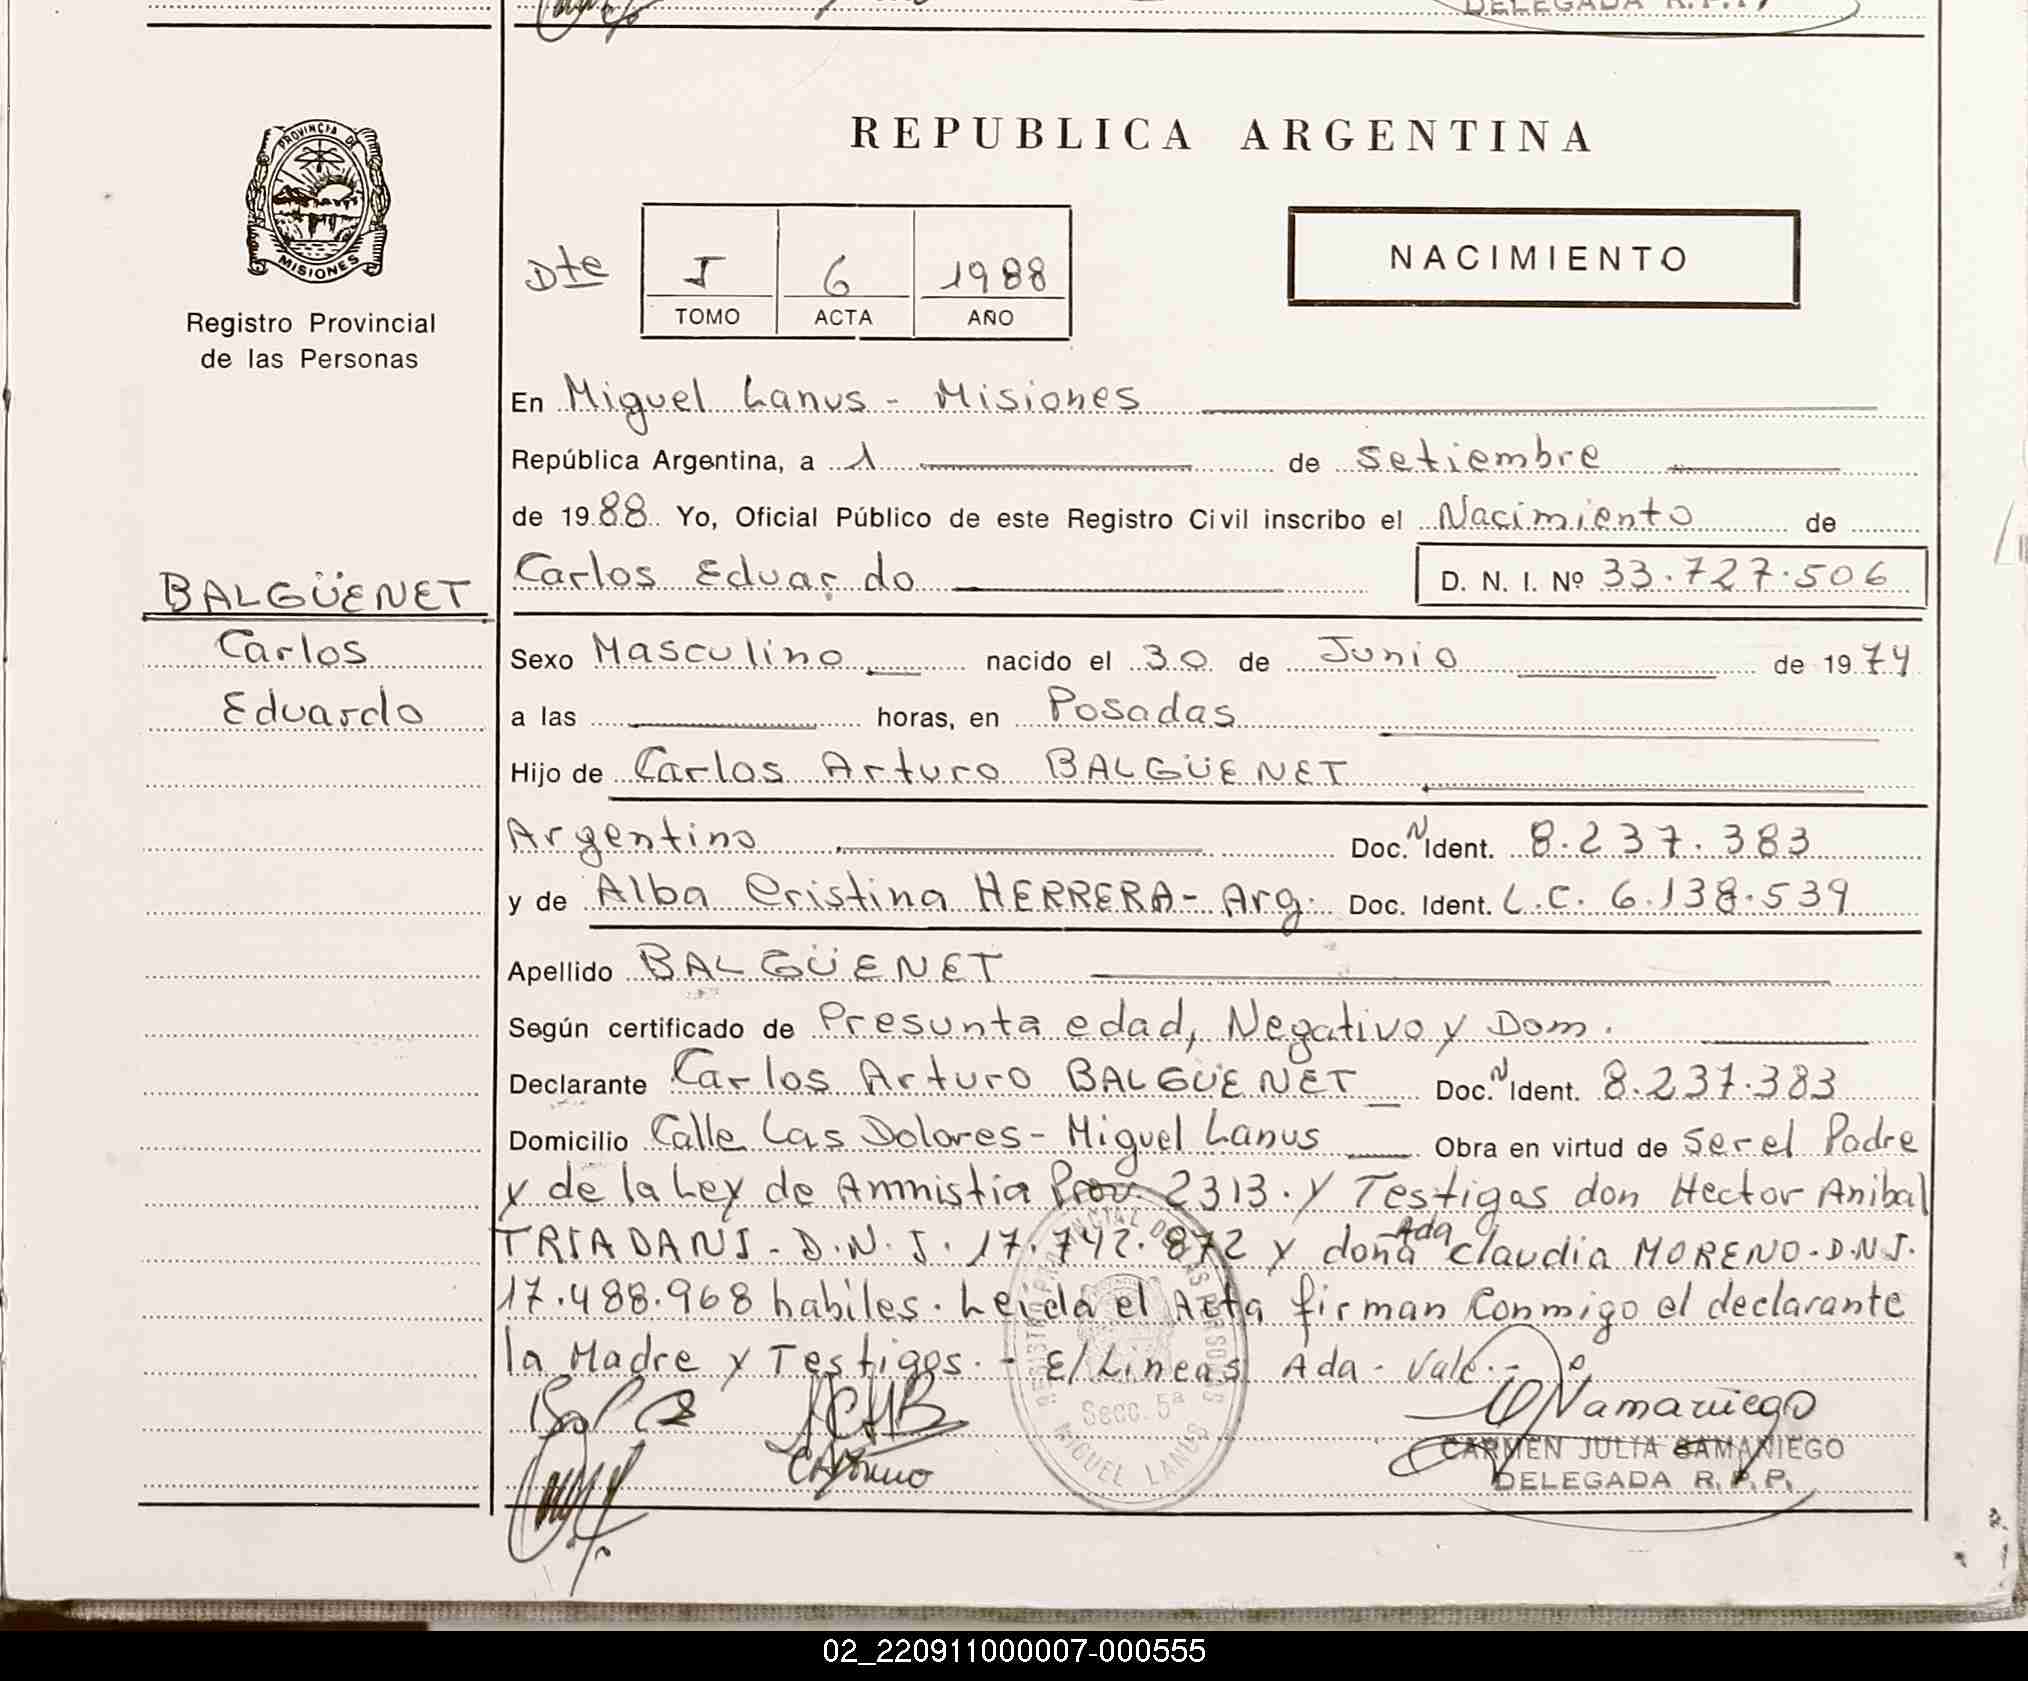 DELEGADA R.P.P.
PROVINCIA DE
MISIONES
Registro Provincial
de las Personas
REPUBLICA ARGENTINA
NACIMIENTO
Dte
I 6 1988
TOMO ACTA AÑO
En Miguel Lanus - Misiones
República Argentina, a 1 de setiembre
de 1988 Yo, Oficial Público de este Registro Civil inscribo el Nacimiento de
Carlos Eduardo D. N. I. Nº 33.727.506
BALGÜENET
Carlos
Eduardo
Sexo Masculino nacido el 30 de Junio de 1974
a las horas, en Posadas
Hijo de Carlos Arturo BALGÜENET
Argentino Doc. N Ident. 8.237.383
y de Alba Cristina HERRERA - Arg. Doc. Ident. L.C. 6.138.539
Apellido BALGÜENET
Según certificado de Presunta edad, Negativo y Dom.
Declarante Carlos Arturo BALGÜENET Doc. N Ident. 8.237.383
Domicilio Calle Las Dolores - Miguel Lanus Obra en virtud de Ser el Padre
y de la Ley de Amnistia Prov. 2313. y Testigos don Hector Anibal
TRIADANI - D.N.I. 17.742.872 y doña Ada Claudia MORENO - D.N.I.
17.488.968 habiles. Leida el Acta firman Conmigo el declarante
la Madre y Testigos. - E/Lineas Ada - Vale. -
REGISTRO PROVINCIAL DE LAS PERSONAS
Secc. 5ª
MIGUEL LANUS
CARMEN JULIA SAMANIEGO
DELEGADA R. P. P.
02_220911000007-000555